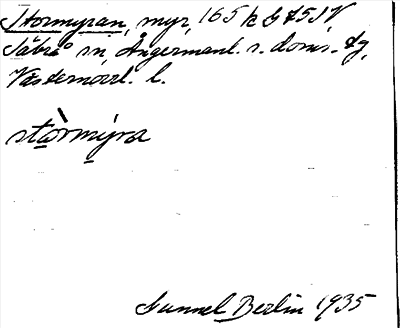 Stormyran, myr, 165 k G 45 SV
Säbrå sn, Ångermanl. s. doms. tg,
Västernorrl. l.
stòrmýra
Gunnel Berlin 1935